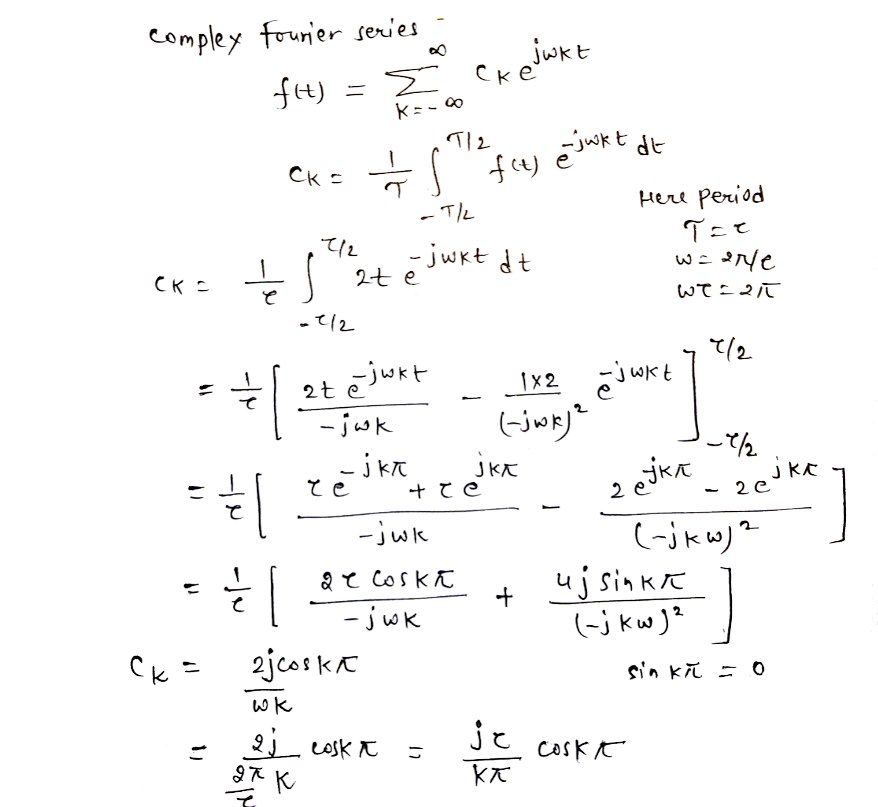 complex fourier series -
f(t) = ∑_{k=-∞}^{∞} C_k e^{jwkt}
C_k = 1/T ∫_{-T/2}^{T/2} f(t) e^{-jwkt} dt
Here period
T = τ
w = 2π/τ
wτ = 2π
C_k = 1/τ ∫_{-τ/2}^{τ/2} 2t e^{-jwkt} dt
= 1/τ [ 2t e^{-jwkt} / -jwk - 1x2 / (-jwk)^2 e^{-jwkt} ]_{-τ/2}^{τ/2}
= 1/τ [ τe^{-jkπ} + τe^{jkπ} / -jwk - 2e^{-jkπ} - 2e^{jkπ} / (-jkw)^2 ]
= 1/τ [ 2τ cos kπ / -jwk + 4j sin kπ / (-jkw)^2 ]
C_k = 2j cos kπ / wk
sin kπ = 0
= 2j / (2π/τ) k cos kπ = jτ / kπ cos kπ